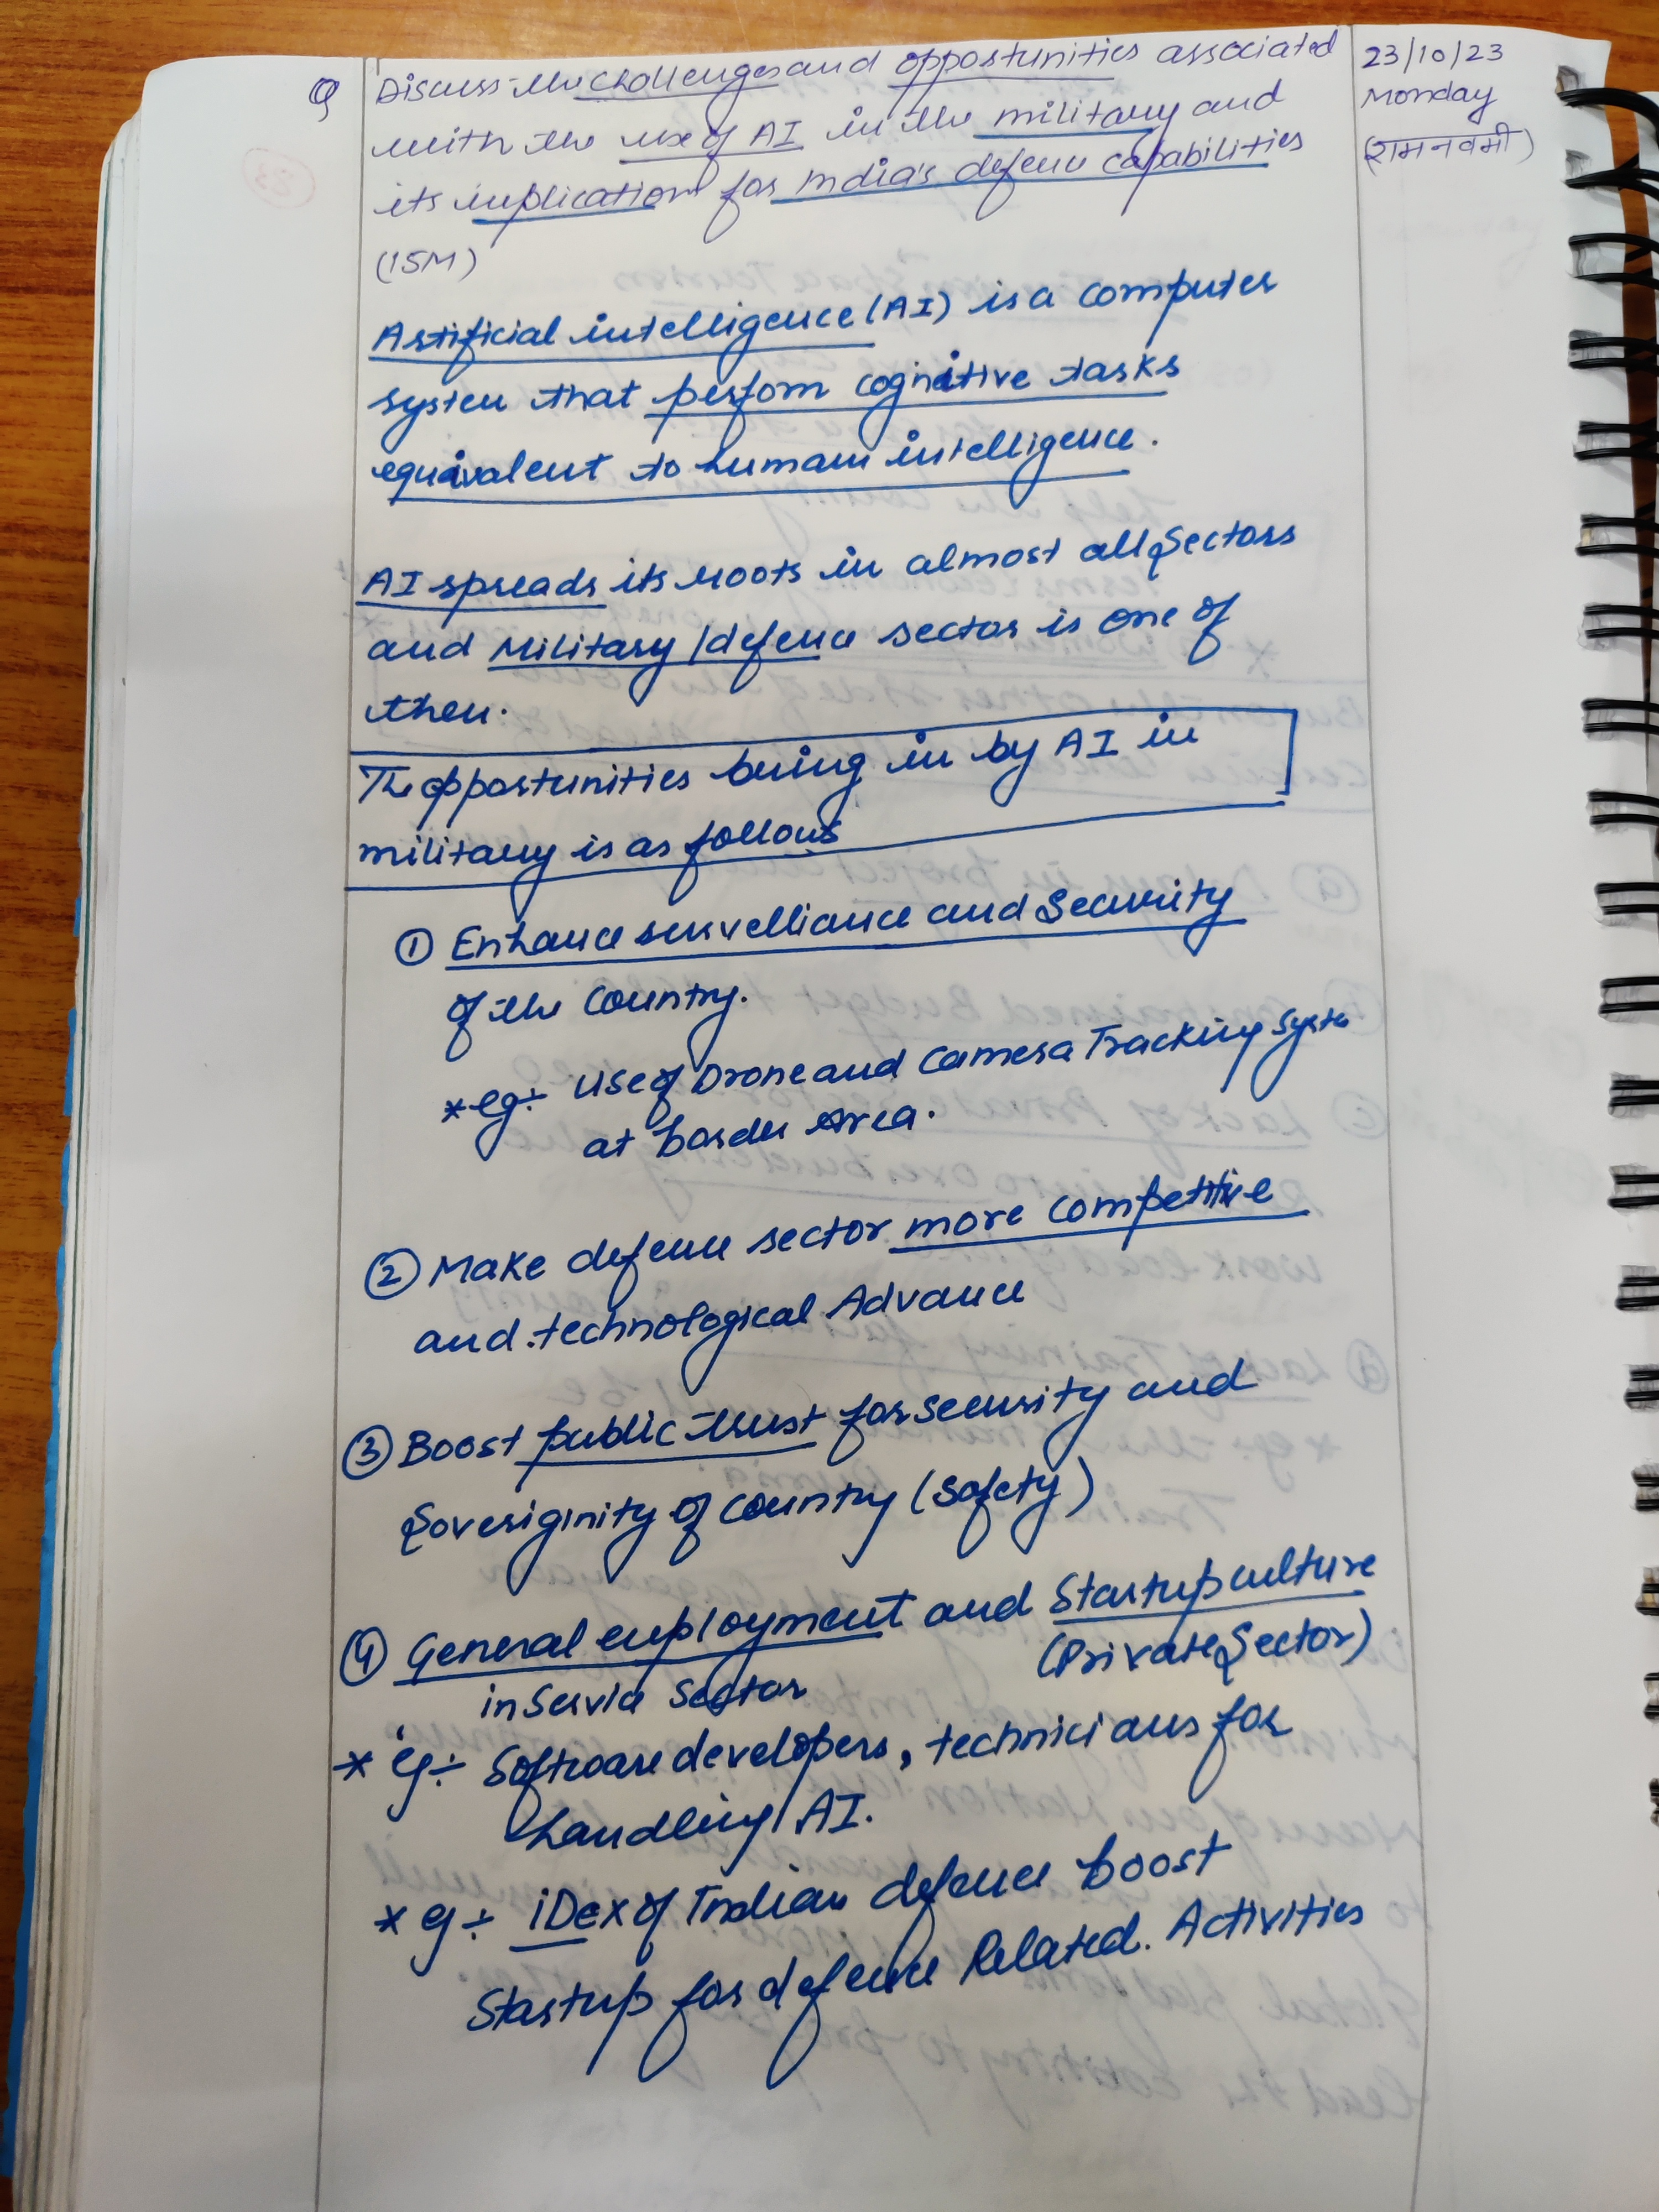 Q Discuss the challenges and opportunities associated
with the use of AI in the military and
its implication for India's defence capabilities
(15M)
23/10/23
Monday
(रामनवमी)
Artificial intelligence (AI) is a computer
system that perform cognitive tasks
equivalent to human intelligence.
AI spreads its roots in almost all sectors
and Military/defence sector is one of
them.
The opportunities being in by AI in
military is as follows
① Enhance survelliance and Security
of the Country.
* eg:- Use of Drone and Camera Tracking System
at border Area.
② Make defence sector more competitive
and technological Advance
③ Boost public trust for security and
Soveriginity of country (Safety)
④ General employment and Startup culture
in Service Sector (Private Sector)
* eg:- Software developers, technicians for
handling AI.
* eg:- iDex of Indian defence boost
Startup for defence Related. Activities